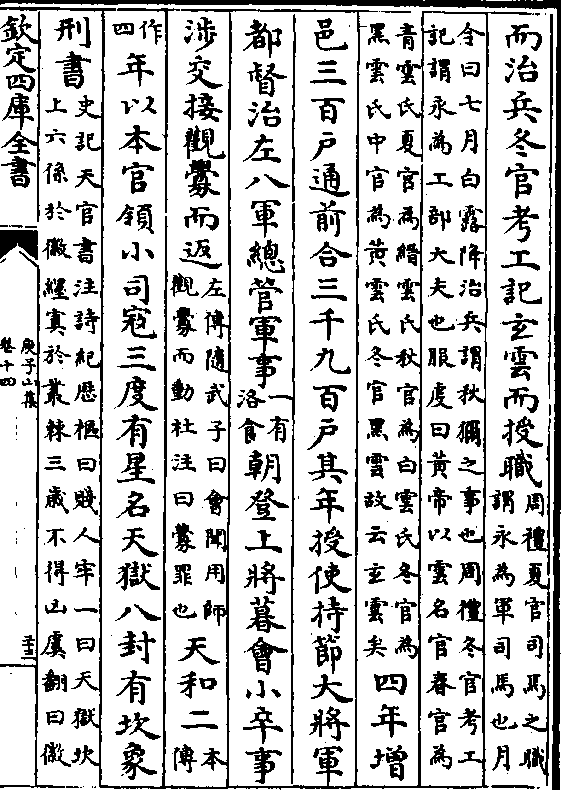 而治兵冬官考工記玄雲而授職周禮夏官司馬之職
謂永為軍司馬也月
令曰七月白露降治兵謂秋獮之事也周禮冬官考工
記謂永為工部大夫也服虔曰黃帝以雲名官春官為
青雲氏夏官為縉雲氏秋官為白雲氏冬官為
黑雲氏中官為黃雲氏冬官黑雲故云玄雲矣四年增
邑三百戶通前合三千九百戶其年授使持節大將軍
都督治左八軍總管軍事一有
洛食朝登上將暮會小卒事
涉交接觀釁而返左傳隨武子曰會聞用師
觀釁而動杜注曰釁罪也天和二本傳
作四年以本官領小司寇三度有星名天獄八封有坎象
刑書史記天官書注詩紀歷樞曰賤人牢一曰天獄坎
上六係於徽纆寘於叢棘三歲不得凶虞翻曰徽
欽定四庫全書
庾子山集
卷十四